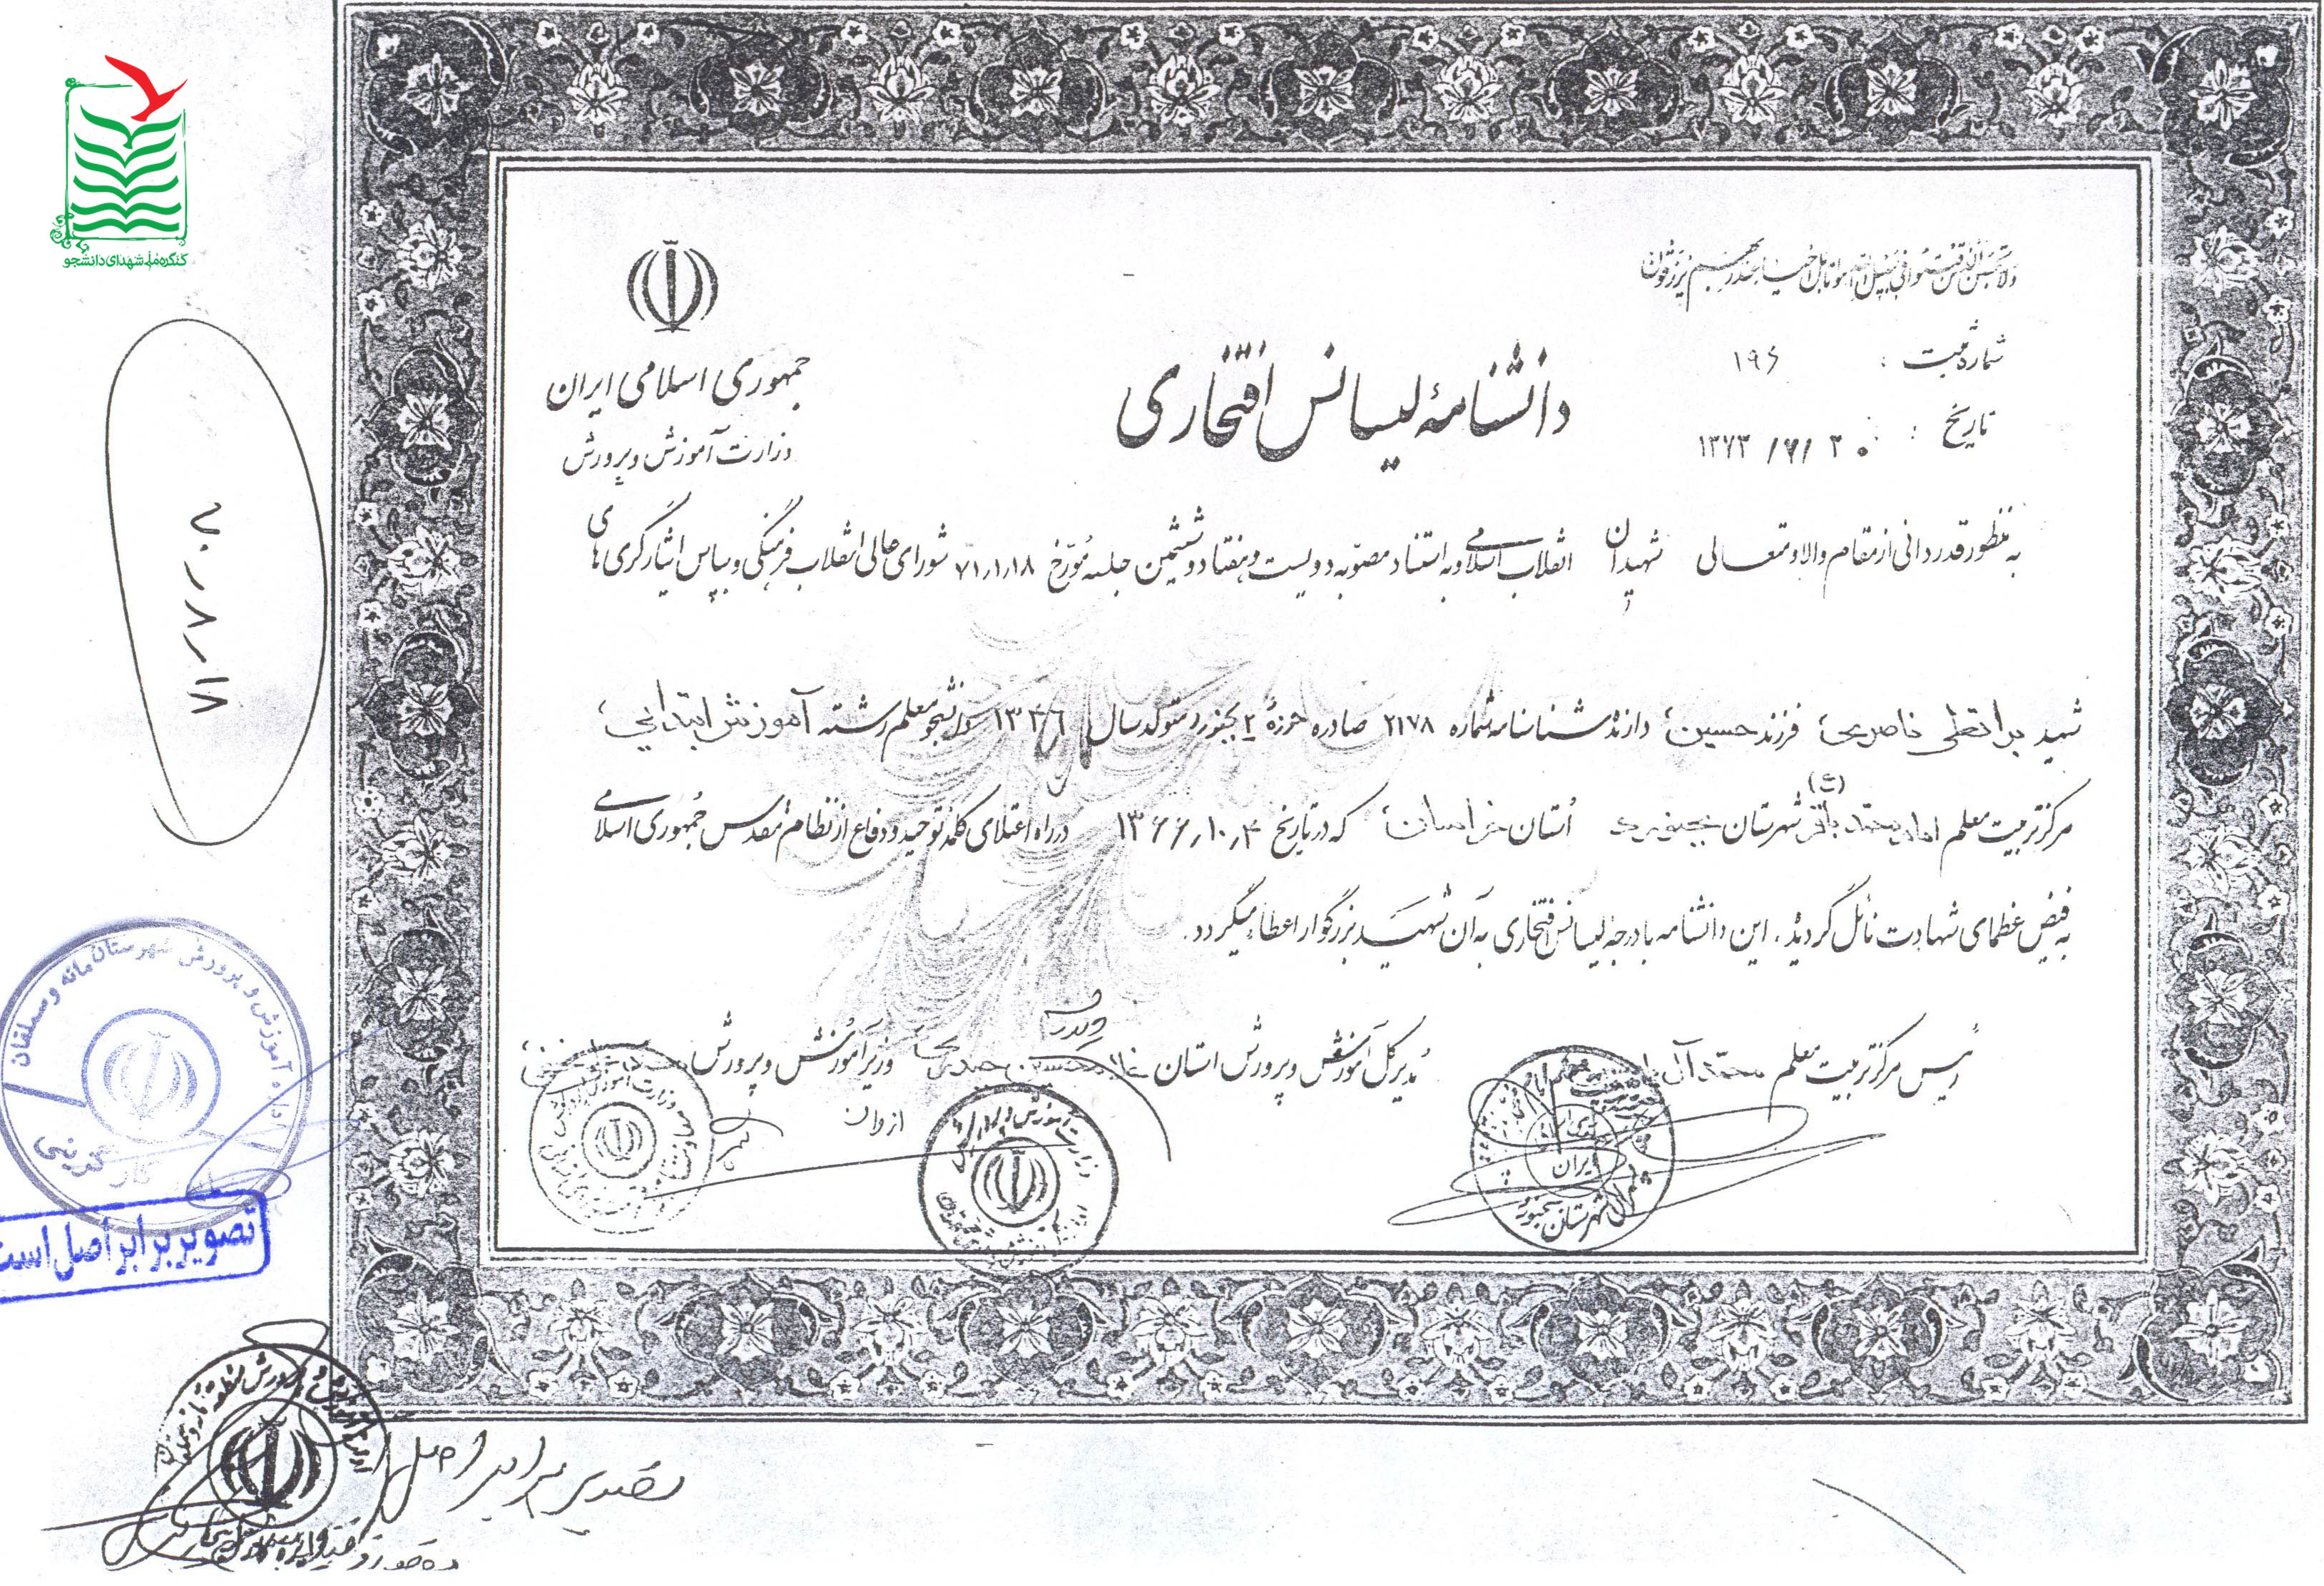 کنگره ملی شهدای دانشجو
ولا تحسبن الذین قتلوا فی سبیل الله امواتا بل احیاء عند ربهم یرزقون
جمهوری اسلامی ایران
وزارت آموزش و پرورش
دانشنامهٔ لیسانس افتخاری
شماره ثبت : ۱۹۶
تاریخ : ۱۳۷۳/۶/۲۰
به منظور قدردانی از مقام والا و متعالی شهیدان انقلاب اسلامی و به استناد مصوّبه دویست و هفتاد و ششمین جلسه مورّخ ۷۱٫۱٫۱۸ شورای عالی انقلاب فرهنگی و بپاس ایثارگری های
شهید براتعلی ناصری فرزند حسین دارنده شناسنامه شماره ۲۱۷۸ صادره حوزهٔ ۲ بجنورد متولد سال ۱۳۴۶ دانشجو معلم رشته آموزش ابتدایی
مرکز تربیت معلم امام محمد باقر (ع) شهرستان بجنورد استان خراسان که در تاریخ ۱۳۶۶٫۱۰٫۴ در راه اعتلای کلمه توحید و دفاع از نظام مقدس جمهوری اسلامی
به فیض عظمای شهادت نائل گردید، این دانشنامه با درجه لیسانس افتخاری به آن شهید بزرگوار اعطاء میگردد.
رئیس مرکز تربیت معلم محمد آل
مدیر کل آموزش و پرورش استان غلامحسین حیدری
وزیر آموزش و پرورش
۷۰٫۸٫۱۸
اداره آموزش و پرورش شهرستان مانه و سملقان
کارگزینی
تصویر برابر اصل است
تصویر برابر اصل